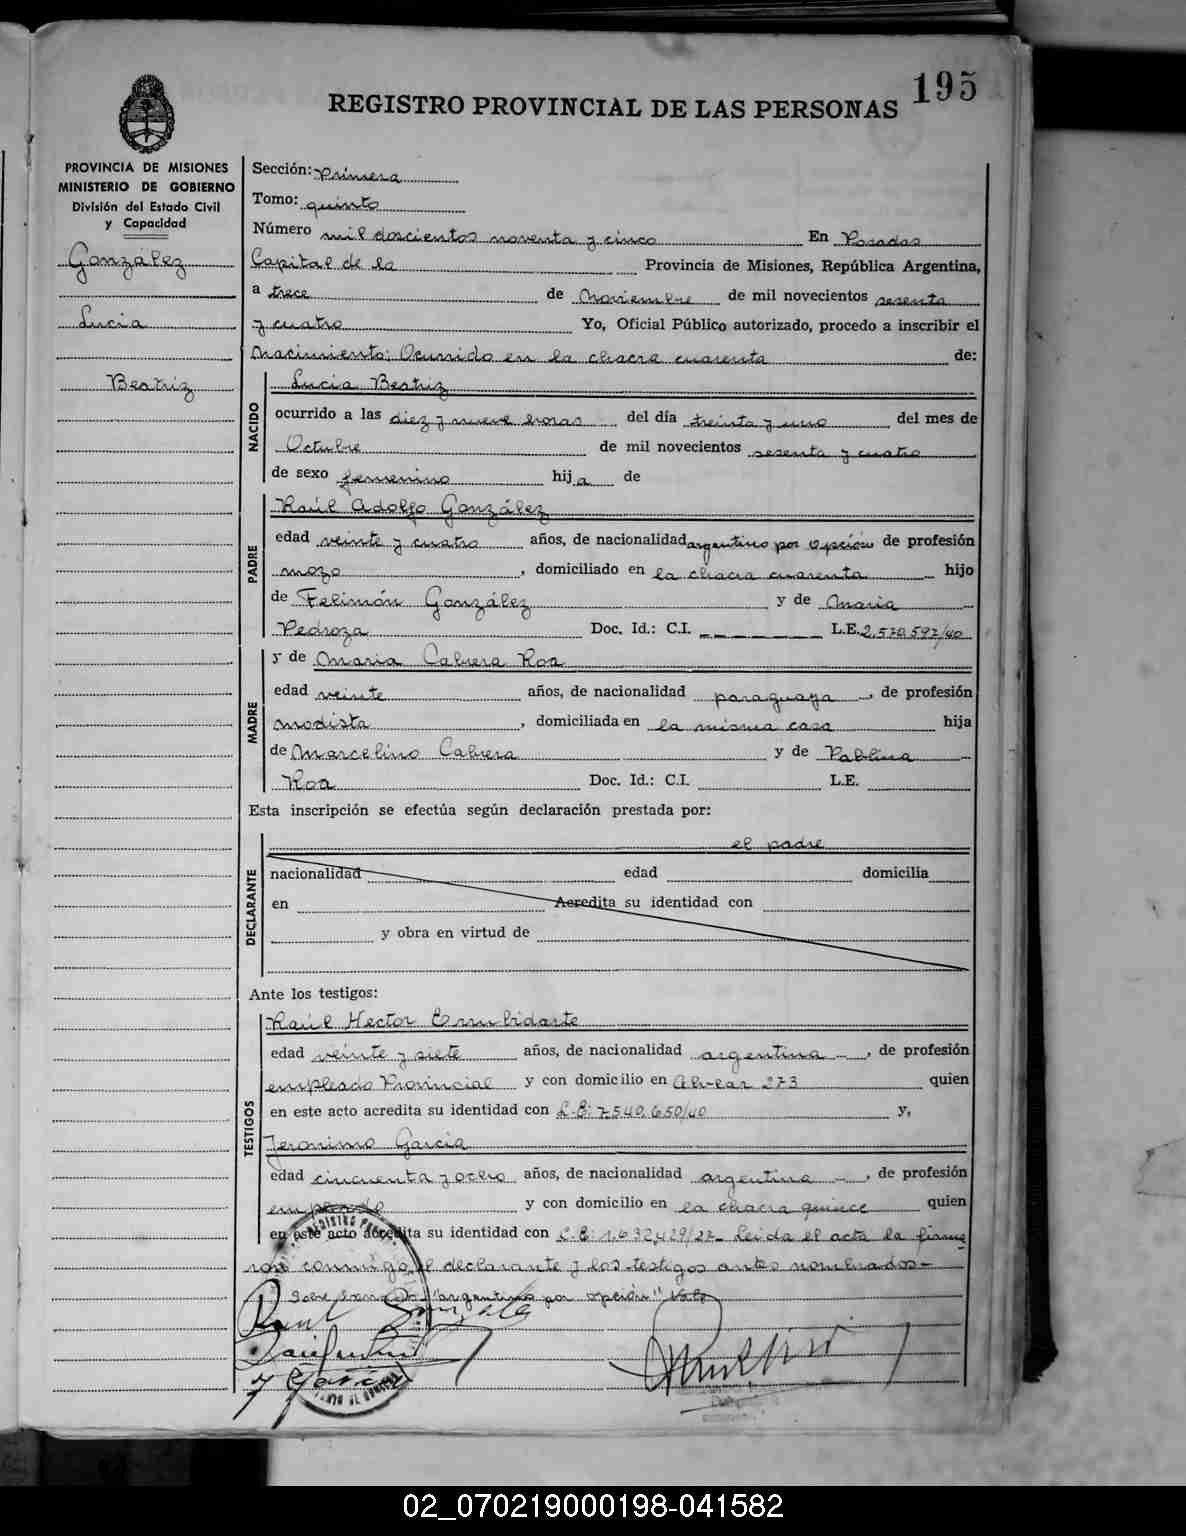 195
REGISTRO PROVINCIAL DE LAS PERSONAS
PROVINCIA DE MISIONES
MINISTERIO DE GOBIERNO
División del Estado Civil
y Capacidad
González
Lucia
Beatriz
Sección: Primera
Tomo: quinto
Número mil doscientos noventa y cinco En Posadas
Capital de la Provincia de Misiones, República Argentina,
a trece de Noviembre de mil novecientos sesenta
y cuatro Yo, Oficial Público autorizado, procedo a inscribir el
Nacimiento: Ocurrido en la chacra cuarenta de:
NACIDO
Lucia Beatriz
ocurrido a las diez y nueve horas del día treinta y uno del mes de
Octubre de mil novecientos sesenta y cuatro
de sexo femenino hija de
PADRE
Raúl Adolfo González
edad veinte y cuatro años, de nacionalidad argentino por opción de profesión
mozo, domiciliado en la chacra cuarenta hijo
de Felimón González y de Maria
Pedroza Doc. Id.: C.I. _ _ _ _ _ _ _ L.E. 2.570.597/40
MADRE
y de Maria Cabrera Roa
edad veinte años, de nacionalidad paraguaya, de profesión
modista, domiciliada en la misma casa hija
de Marcelino Cabrera y de Pablina
Roa Doc. Id.: C.I. L.E.
Esta inscripción se efectúa según declaración prestada por:
DECLARANTE
el padre
nacionalidad edad domicilia
en Acredita su identidad con
y obra en virtud de
Ante los testigos:
TESTIGOS
Raúl Hector
edad veinte y siete años, de nacionalidad argentina -, de profesión
empleado Provincial y con domicilio en Alvear 273 quien
en este acto acredita su identidad con L.E: 7.540.650/40 y,
Jeronimo Garcia
edad cincuenta y ocho años, de nacionalidad argentina -, de profesión
empleado y con domicilio en la chacra quince quien
en este acto acredita su identidad con L.E: 1.632.429/27_ Leida el acta la firma
ron conmigo el declarante y los testigos antes nombrados-
Sobre "argentino por opción" Vale
Raul Gonzalez
J Garcia
02_070219000198-041582